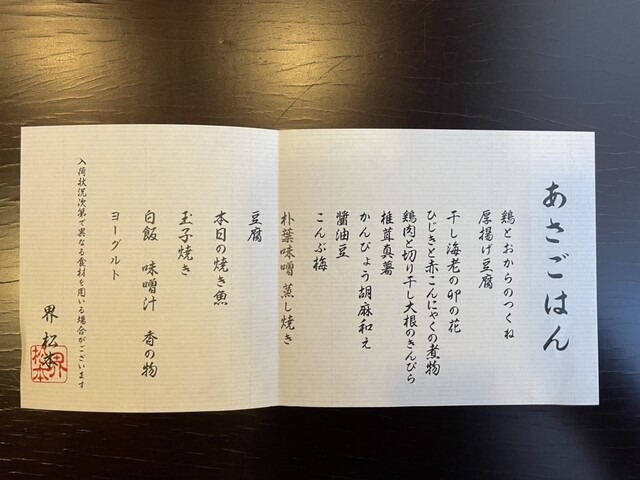 あさごはん
鶏とおからのつくね
厚揚げ豆腐
干し海老の卯の花
ひじきと赤こんにゃくの煮物
鶏肉と切り干し大根のきんぴら
椎茸真薯
かんぴょう胡麻和え
醬油豆
こんぶ梅
朴葉味噌蒸し焼き
豆腐
本日の焼き魚
玉子焼き
白飯 味噌汁 香の物
ヨーグルト
入荷状況次第で異なる食材を用いる場合がございます
界 松本
界松本